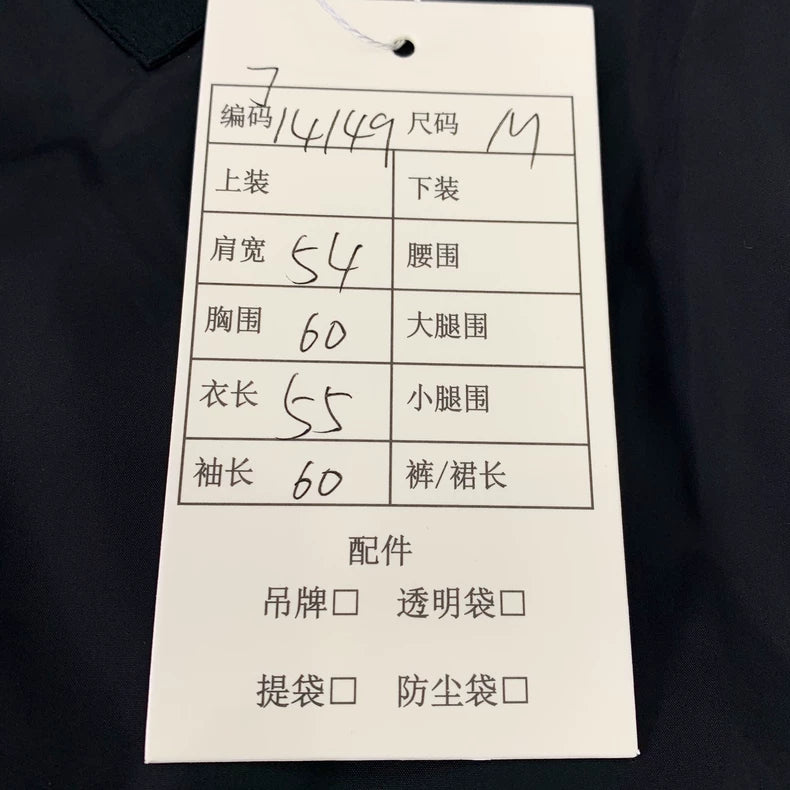 J
编码 14149 尺码 M
上装 下装
肩宽 54 腰围
胸围 60 大腿围
衣长 55 小腿围
袖长 60 裤/裙长
配件
吊牌□ 透明袋□
提袋□ 防尘袋□